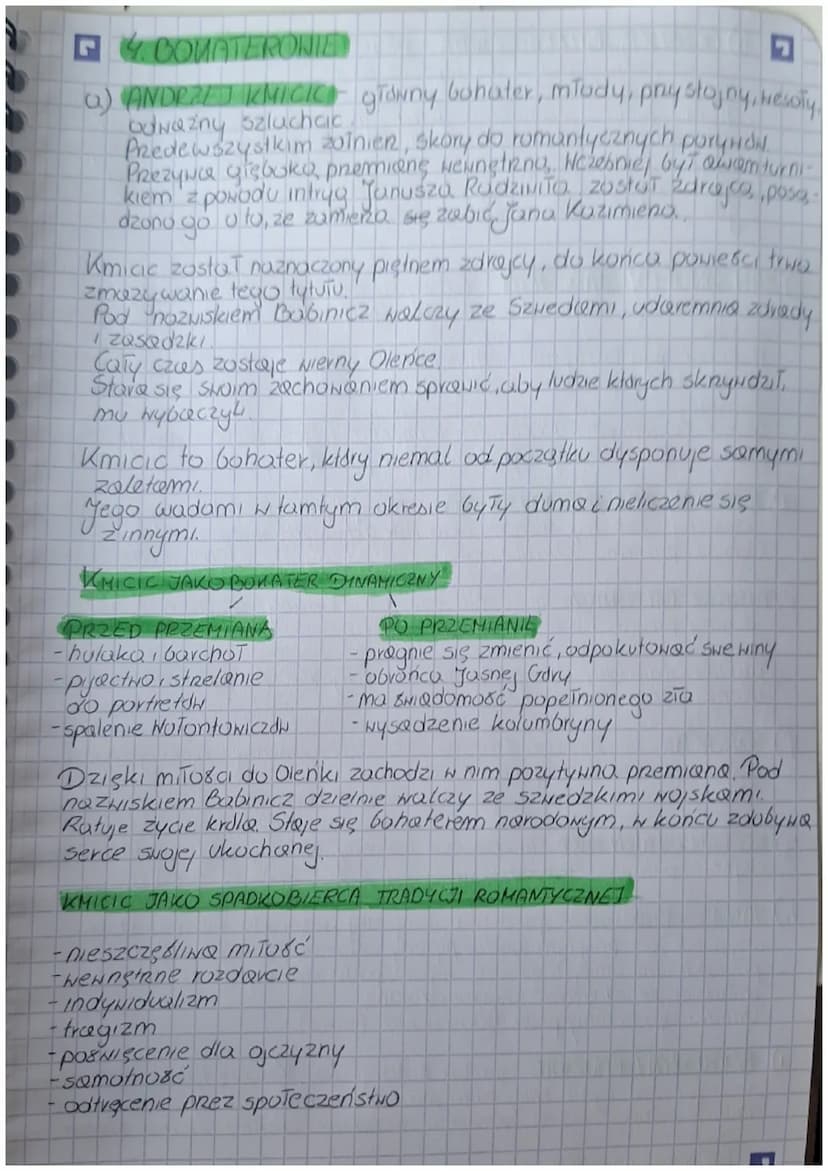 4. BOHATEROWIE
a) ANDRZEJ KMICIC - główny bohater, młody, przystojny, wesoły,
odważny szlachcic.
Przede wszystkim żołnierz, skory do romantycznych porywów.
Przeżywa głęboką przemianę wewnętrzną. Wcześniej był awanturni-
kiem z powodu intryg Janusza Radziwiła został zdrajcą, posą-
dzono go o to, że zamierza się zabić Jana Kazimierza.
Kmicic został naznaczony piętnem zdrajcy, do końca powieści trwa
zmazywanie tego tytułu.
Pod nazwiskiem Babinicz walczy ze Szwedami, udaremnia zdrady
i zasadzki.
Cały czas zostaje wierny Oleńce.
Stara się swoim zachowaniem sprawić, aby ludzie których skrzywdził,
mu wybaczyli.
Kmicic to bohater, który niemal od początku dysponuje samymi
zaletami.
Jego wadami w tamtym okresie były duma i nieliczenie się
z innymi.
KMICIC JAKO BOHATER DYNAMICZNY
PRZED PRZEMIANĄ
- hulaka i barchoł
- pijactwo i strzelanie
do portretów
- spalenie Wołontowiczów
PO PRZEMIANIE
- pragnie się zmienić, odpokutować swe winy
- obrońca Jasnej Góry
- ma świadomość popełnionego zła
- wysadzenie kolumbryny
Dzięki miłości do Oleńki zachodzi w nim pozytywna przemiana. Pod
nazwiskiem Babinicz dzielnie walczy ze szwedzkimi wojskami.
Ratuje życie króla. Staje się bohaterem narodowym, w końcu zdobywa
serce swojej ukochanej.
KMICIC JAKO SPADKOBIERCA TRADYCJI ROMANTYCZNEJ
- nieszczęśliwa miłość
- wewnętrzne rozdarcie
- indywidualizm
- tragizm
- poświęcenie dla ojczyzny
- samotność
- odtrącenie przez społeczeństwo